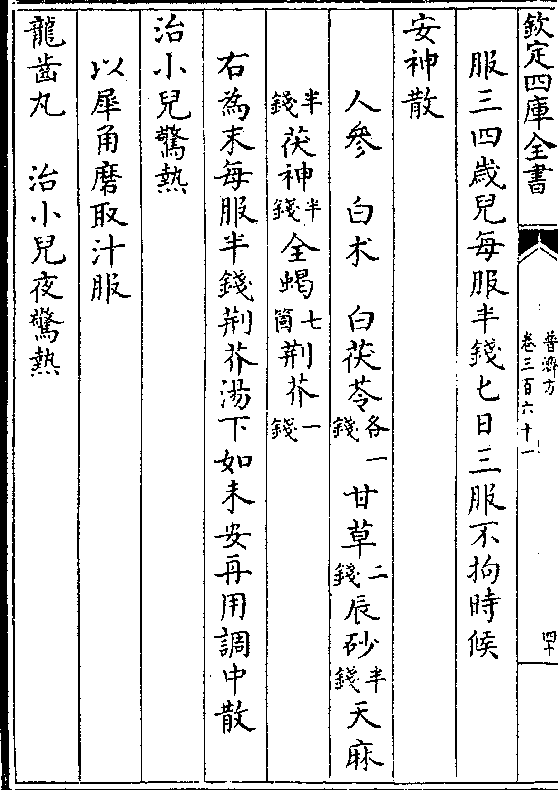 欽定四庫全書
普濟方
卷三百六十一
四十
服三四歲兒每服半錢七日三服不拘時候
安神散
人參 白术 白茯苓各一錢甘草二錢辰砂半錢天麻
半錢茯神半錢全蝎七箇荆芥一錢
右為末每服半錢荆芥湯下如未安再用調中散
治小兒驚熱
以犀角磨取汁服
龍齒丸 治小兒夜驚熱